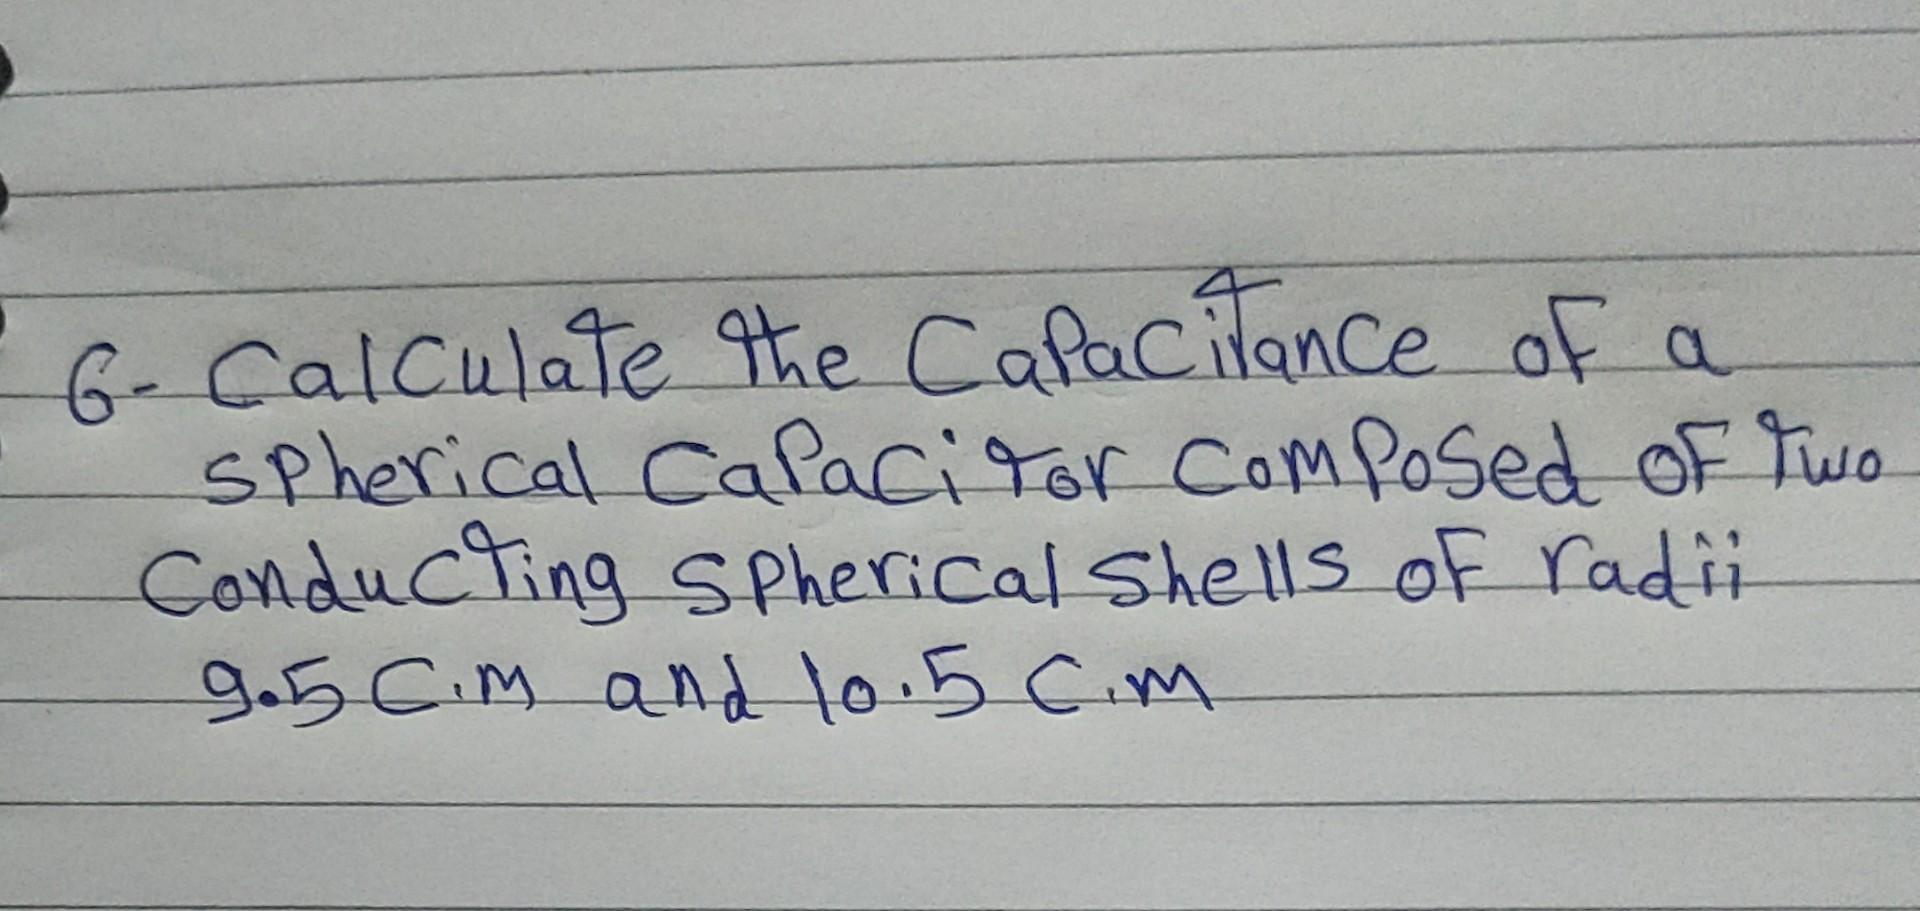 6- Calculate the Capacitance of a
spherical Capacitor composed of two
Conducting spherical shells of radii
9.5 C.m and 10.5 C.m